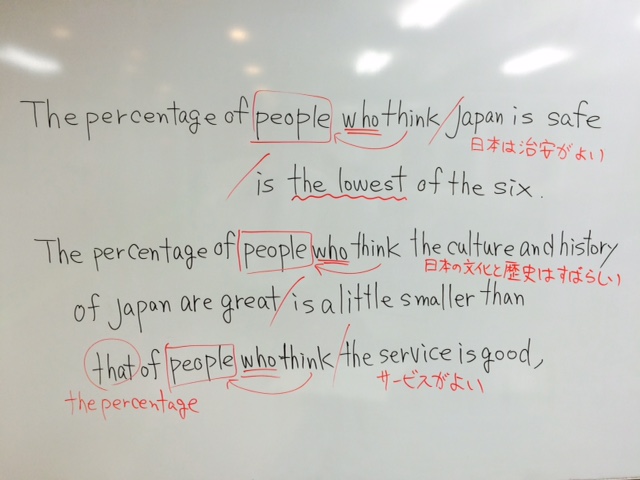 The percentage of people who think Japan is safe
日本は治安がよい
is the lowest of the six.
The percentage of people who think the culture and history
日本の文化と歴史はすばらしい
of Japan are great is a little smaller than
that of people who think the service is good,
the percentage サービスがよい